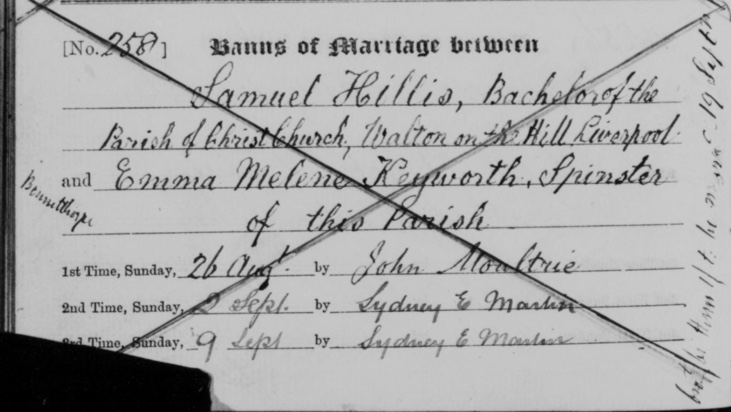 [No. 258] Banns of Marriage between
Samuel Hillis, Bachelor of the
Parish of Christ Church, Walton on the Hill Liverpool
and Emma Melene Keyworth, Spinster
of this Parish
1st Time, Sunday, 26 Augt. by John Moultrie
2nd Time, Sunday, 2 Sept. by Sydney E Martin
3rd Time, Sunday, 9 Sept by Sydney E Martin
Bennetthorpe
19 Sept